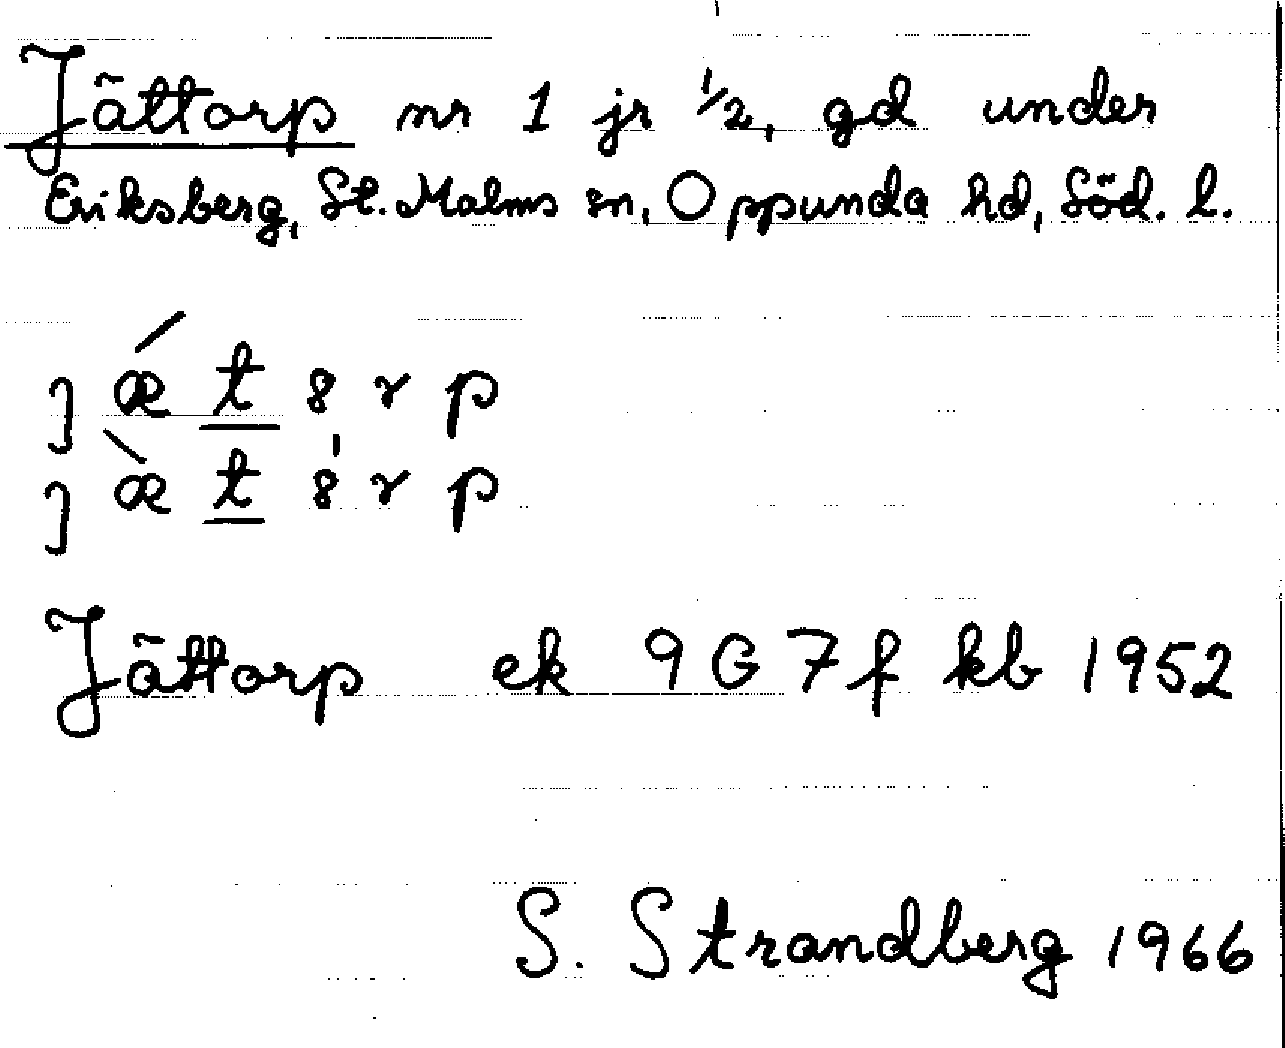 Jättorp nr 1 jr 1/2, gd under
Eriksberg, St. Malms sn, Oppunda hd, Söd. l.
Jättorp ek 9G7f kb 1952
S. Strandberg 1966